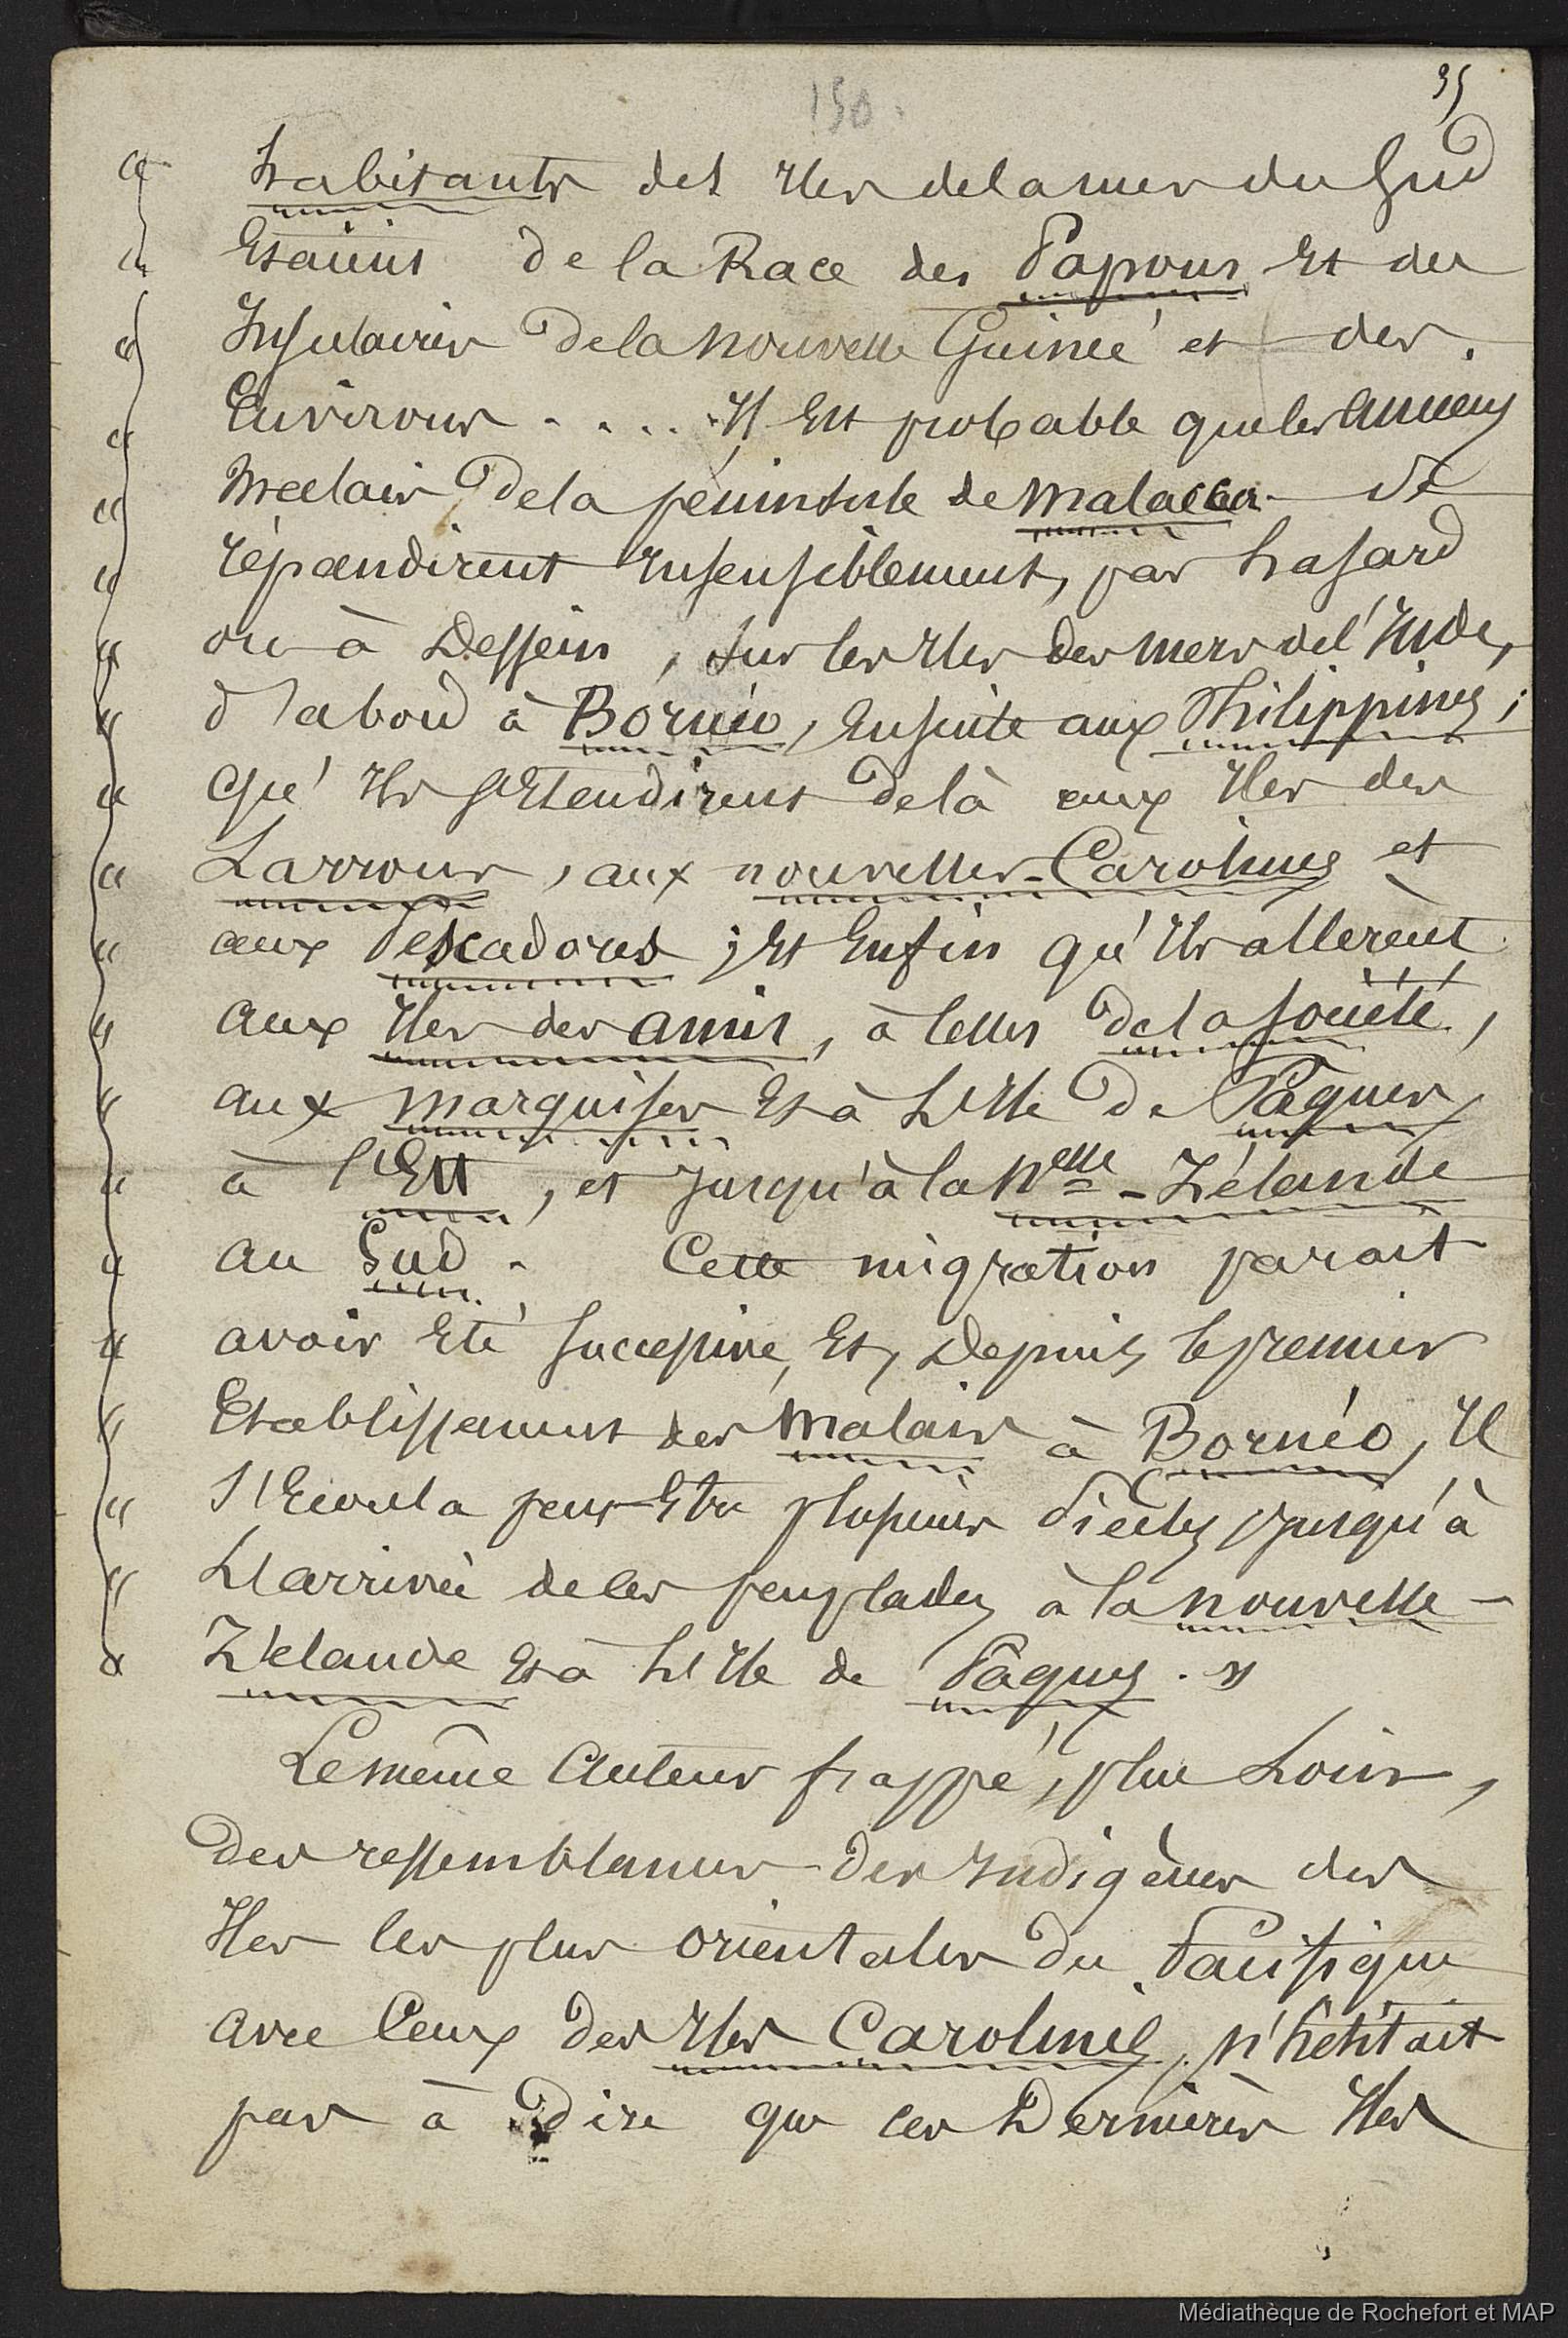 150.
95
" habitants des Iles de la mer du Sud
" Etaient de la Race des Papous Et des
" Insulaires De la nouvelle Guinée et des
" Environs . . . . Il Est probable que les anciens
" Malais De la péninsule de Malacca se
" répandirent Insensiblement, par hasard
" ou à Dessein, sur les Iles des mers de l'Inde,
" d'abord à Bornéo, Ensuite aux Philippines;
" qu'Ils s'Etendirent De là aux Iles des
" Larrons, aux nouvelles-Carolines et
" aux Pescadores; Et Enfin qu'Ils allèrent
" aux Iles des amis, à celles De la Société,
" aux marquises Et à L'Ile De Pâques,
" à l'Est, et Jusqu'à la Nelle-Zélande
" au Sud. Cette migration parait
" avoir Eté Successive, Et, Depuis le premier
" Etablissement des Malais à Bornéo, Il
" s'Ecoula peut-Etre plusieurs Siècles Jusqu'à
" L'arrivée de ces peuplades à la nouvelle-
" Zélande Et à L'Ile de Pâques. "
Le même Auteur frappé, plus Loin,
Des ressemblances Des Indigènes des
Iles les plus orientales Du Pacifique
avec Ceux Des Iles Carolines, n'hésitait
pas à Dire que ces Dernières Iles
Médiathèque de Rochefort et MAP